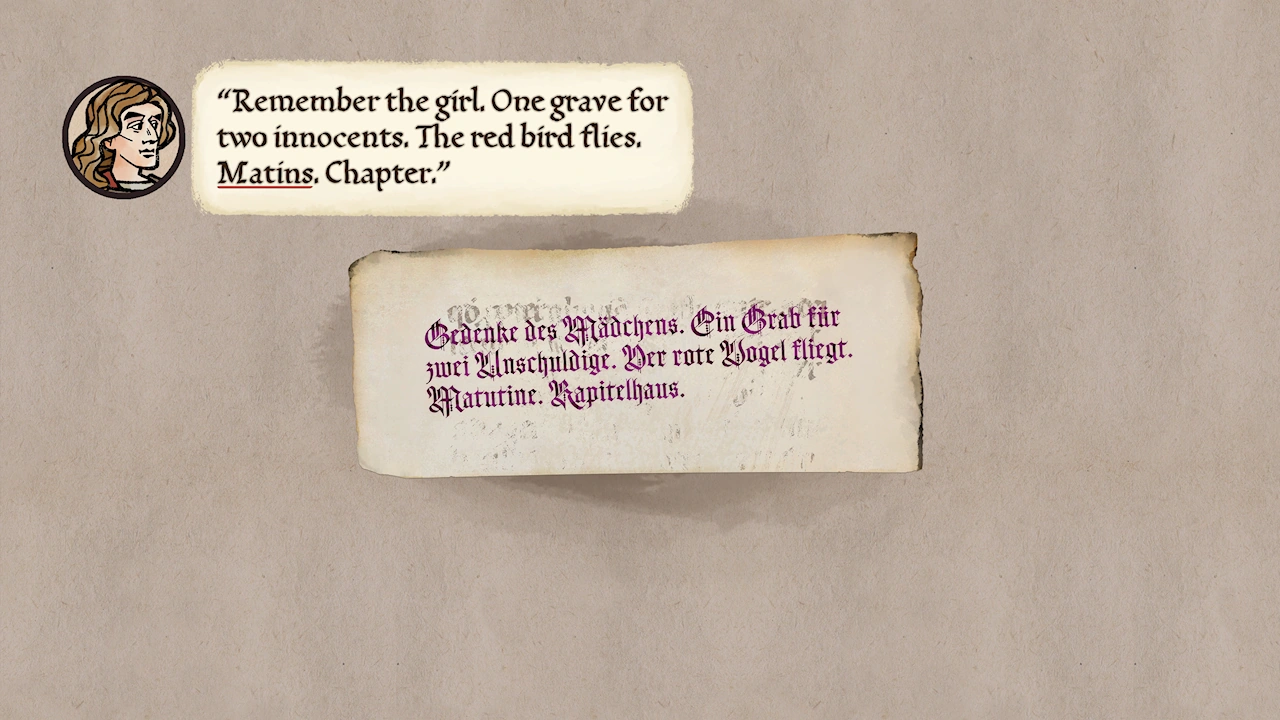 “Remember the girl. One grave for
two innocents. The red bird flies.
Matins. Chapter.”
Gedenke des Mädchens. Ein Grab für
zwei Unschuldige. Der rote Vogel fliegt.
Matutine. Kapitelhaus.